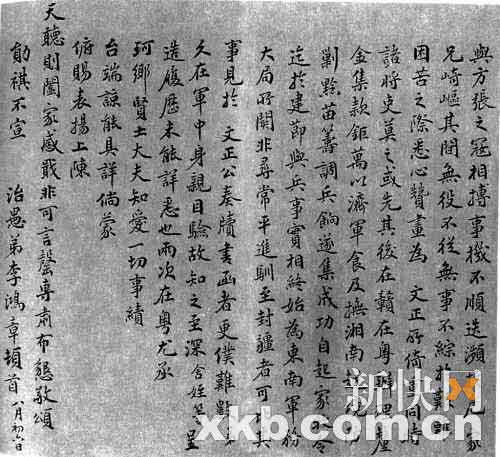 與方張之寇相搏事機不順迭瀕危家
兄崎嶇其間無役不從無事不綜於艱難
困苦之際悉心贊畫為 文正所倚重同時
諸將吏莫之或先其後在贛在粵辦理釐
金集款鉅萬以濟軍食及撫湘南
剿黔苗籌調兵餉遂集成功自起家令
迄於建節與兵事實相終始為東南軍務
大局所關非尋常平進馴至封疆者可其
事見於 文正公奏牘書函者更僕難數
久在軍中身親目驗故知之至深舍姪等呈
造履歷未能詳悉也兩次在粵尤承
珂鄉賢士大夫知愛一切事績
台端諒能具詳倘蒙
俯賜表揚上陳
天聽則闔家感戴非可言罄專肅布懇敬頌
勛祺不宣 治愚弟李鴻章頓首 八月初六日
新快网
xkb.com.cn